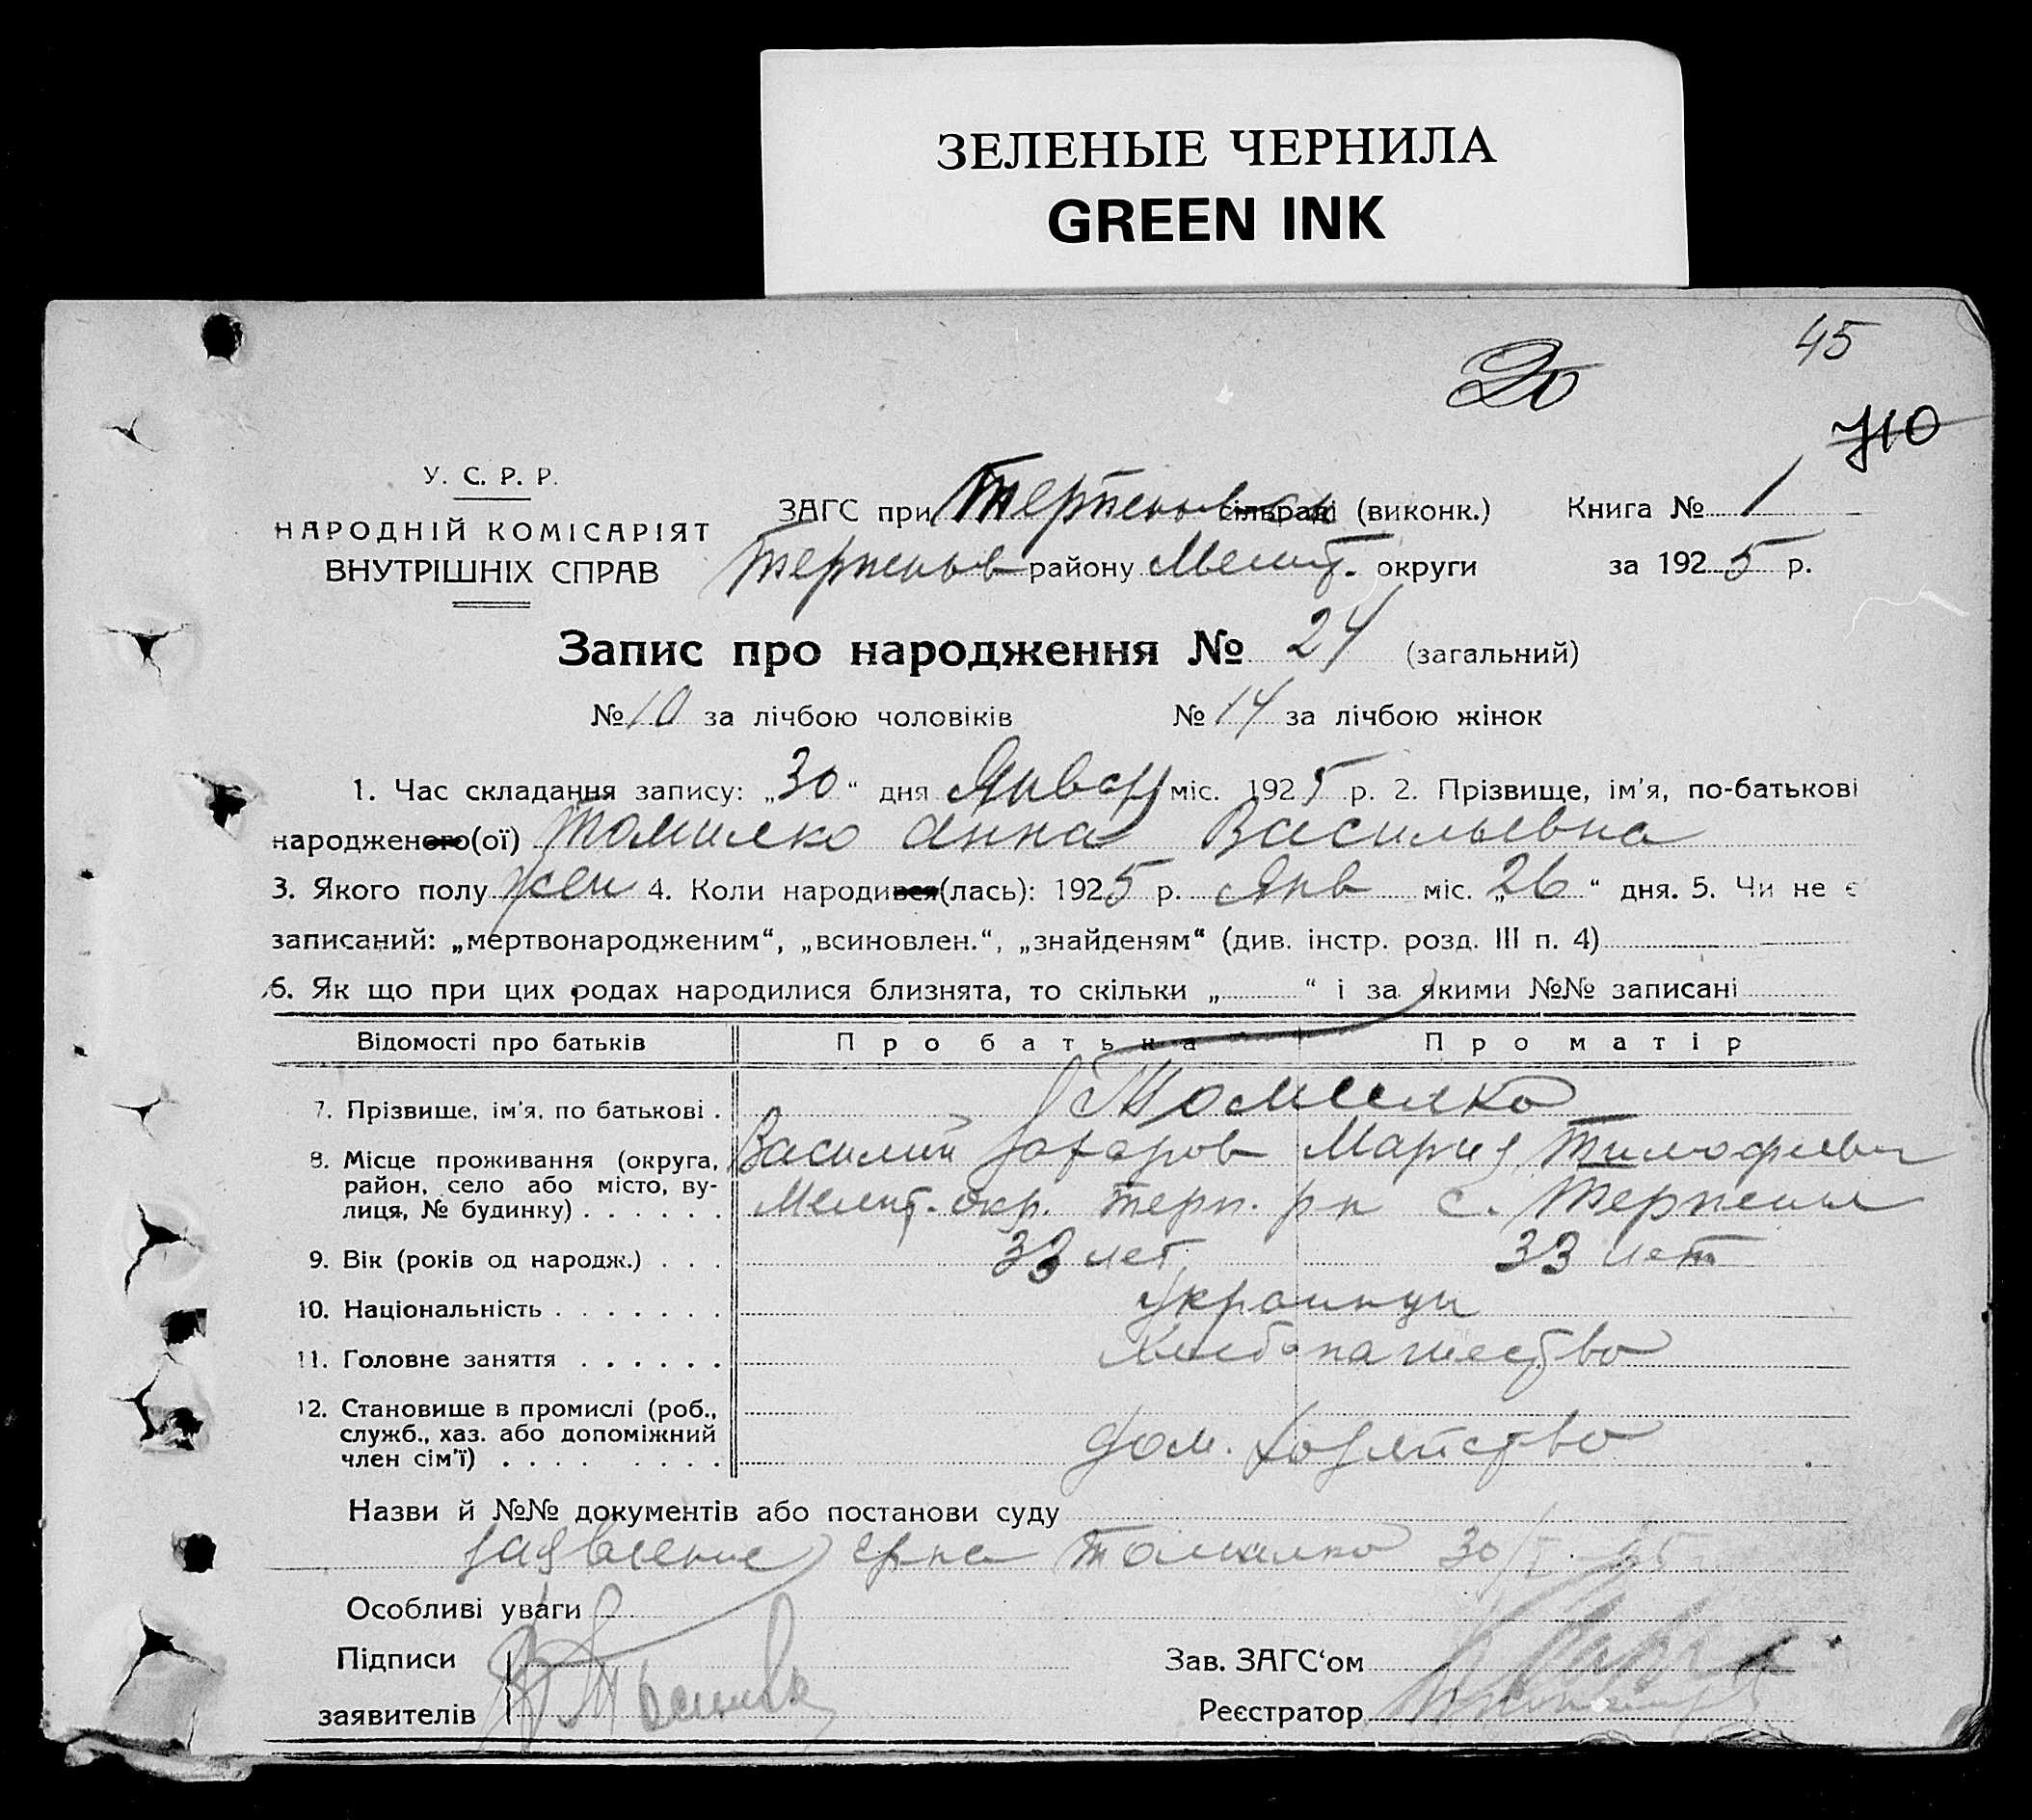 ЗЕЛЕНЫЕ ЧЕРНИЛА
GREEN INK
45
20
710
У. С. Р. Р.
НАРОДНІЙ КОМІСАРІЯТ
ВНУТРІШНІХ СПРАВ
ЗАГС при Терпеньевск сільраді (виконк.) Книга № 1
Терпеньев району Мелит. округи за 1925 р.
Запис про народження № 24 (загальний)
№ 10 за лічбою чоловіків № 14 за лічбою жінок
1. Час складання запису: „30“ дня Января міс. 1925 р. 2. Прізвище, ім’я, по-батькові
народженого(ої) Томилко Анна Васильевна
3. Якого полу жен 4. Коли народився(лась): 1925 р. Янв міс. „26“ дня. 5. Чи не є
записаний: „мертвонародженим“, „всиновлен.“, „знайденям“ (див. інстр. розд. III п. 4)
6. Як що при цих родах народилися близнята, то скільки „ “ і за якими №№ записані
Відомості про батьків Про батька Про матір
7. Прізвище, ім’я, по батькові . Томилко
Василий Захаров Мария Тимофиевн
8. Місце проживання (округа,
район, село або місто, ву-
лиця, № будинку) . . . . . . Мелит. окр. Терп. рн с. Терпенье
9. Вік (років од народж.) . . . 33 лет 33 лет
10. Національність . . . . . . . Украинцы
11. Головне заняття . . . . . . Хлебопашество
12. Становище в промислі (роб.,
служб., хаз. або допоміжний
член сім’ї) . . . . . . . . . Дом. хозяйство
Назви й №№ документів або постанови суду
заявление гр-на Томилко 30/I 25
Особливі уваги
Підписи
заявителів
Зав. ЗАГС‘ом
Реєстратор